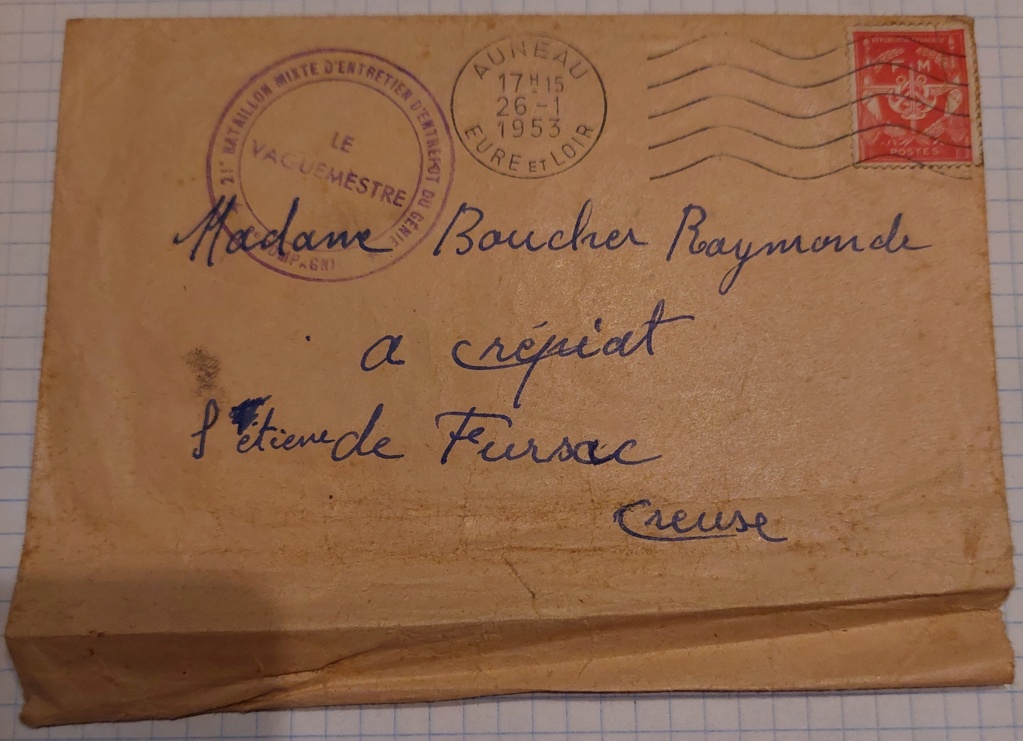 21e BATAILLON MIXTE D'ENTRETIEN D'ENTREPOT DU GÉNIE
COMPAGNI
LE
VAGUEMESTRE
AUNEAU
17H15
26-1
1953
EURE ET LOIR
F M
POSTES
Madame Boucher Raymonde
a crépiat
St étiene de Fursac
Creuse